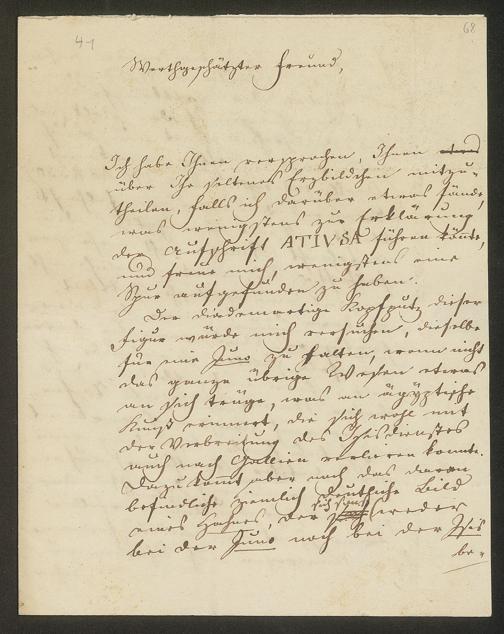 4-1
68
Werthgeschätzter Freund,
Ich habe Ihnen versprochen, Ihnen etwas
über Ihr seltenes Erzbildchen mitzu-
theilen, falls ich darüber etwas fände,
was wenigstens zur Erklärung
der Aufschrift ATIVSA führen könte,
und freue mich, wenigstens eine
Spur aufgefunden zu haben.
Der diademartige Kopfputz dieser
Figur würde mich versuchen, dieselbe
für eine Juno zu halten, wenn nicht
das ganze übrige Wesen etwas
an sich trüge, was an ägyptische
Kunst erinnert, die sich wohl mit
der Verbreitung des Isisdienstes
auch nach Gallien verlieren konnte.
Dazu komt aber noch das daran
befindliche ziemlich deutliche Bild
eines Hahnes, der sich sonst weder
bei der Juno noch bei der Isis
be-